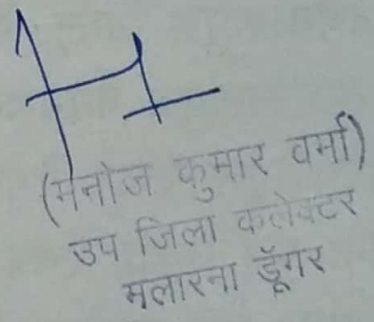 (मनोज कुमार वर्मा)
उप जिला कलेक्टर
मलारना डूँगर